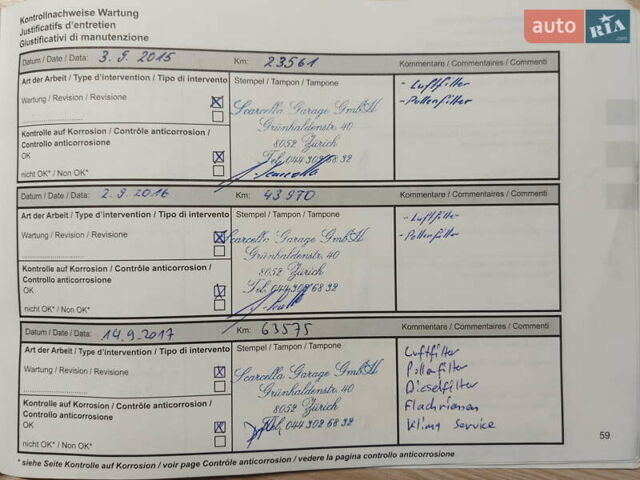 auto RIA.com
Kontrollnachweise Wartung
Justificatifs d'entretien
Giustificativi di manutenzione
Datum / Date / Data: 3.9.2015 Km: 23561 Kommentare / Commentaires / Commenti
Art der Arbeit / Type d'intervention / Tipo di intervento Stempel / Tampon / Tampone - Luftfilter
Wartung / Revision / Revisione Scarcella Garage GmbH - Pollenfilter
Grünhaldenstr. 40
Kontrolle auf Korrosion / Contrôle anticorrosion / 8052 Zürich
Controllo anticorrosione
OK Tel. 044 302 68 32
nicht OK* / Non OK*
Datum / Date / Data: 2.9.2016 Km: 43970 Kommentare / Commentaires / Commenti
Art der Arbeit / Type d'intervention / Tipo di intervento Stempel / Tampon / Tampone - Luftfilter
Wartung / Revision / Revisione Scarcella Garage GmbH - Pollenfilter
Grünhaldenstr. 40
Kontrolle auf Korrosion / Contrôle anticorrosion / 8052 Zürich
Controllo anticorrosione
OK Tel. 044 302 68 32
nicht OK* / Non OK*
Datum / Date / Data: 14.9.2017 Km: 63575 Kommentare / Commentaires / Commenti
Art der Arbeit / Type d'intervention / Tipo di intervento Stempel / Tampon / Tampone Luftfilter
Wartung / Revision / Revisione Scarcella Garage GmbH Pollenfilter
Grünhaldenstr. 40 Dieselfilter
Kontrolle auf Korrosion / Contrôle anticorrosion / 8052 Zürich Flachriemen
Controllo anticorrosione
OK Tel. 044 302 68 32 Klima Service
nicht OK* / Non OK*
59
* siehe Seite Kontrolle auf Korrosion / voir page Contrôle anticorrosion / vedere la pagina controllo anticorrosione